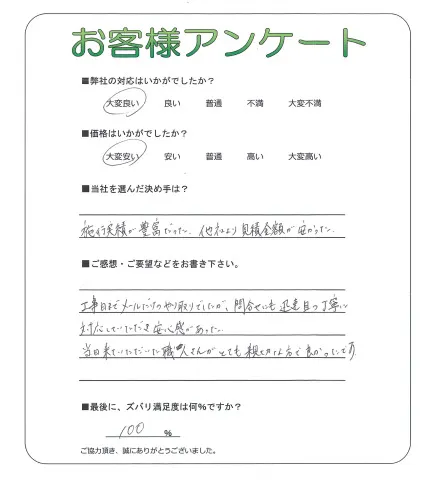 お客様アンケート
■弊社の対応はいかがでしたか？
大変良い 良い 普通 不満 大変不満
■価格はいかがでしたか？
大変安い 安い 普通 高い 大変高い
■当社を選んだ決め手は？
施行実績が豊富だった。他社より見積金額が安かった。
■ご感想・ご要望などをお書き下さい。
工事日までメールだけのやり取りでしたが、問合せにも迅速且つ丁寧に
対応していただき安心感があった。
当日来ていただいた職人さんがとても親切な方で良かったです
■最後に、ズバリ満足度は何%ですか？
100 %
ご協力頂き、誠にありがとうございました。